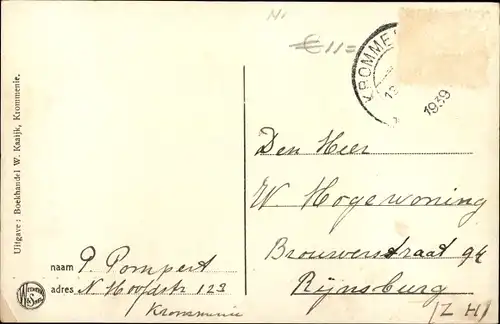 € 11=
KROMME
1939
Uitgave: Boekhandel W. Kaaijk, Krommenie.
Den Heer
W. Hogewoning
Brouwerstraat 94
Rijnsburg
(Z H)
naam P. Pompert
adres N Hoofdstr 123
Krommenie